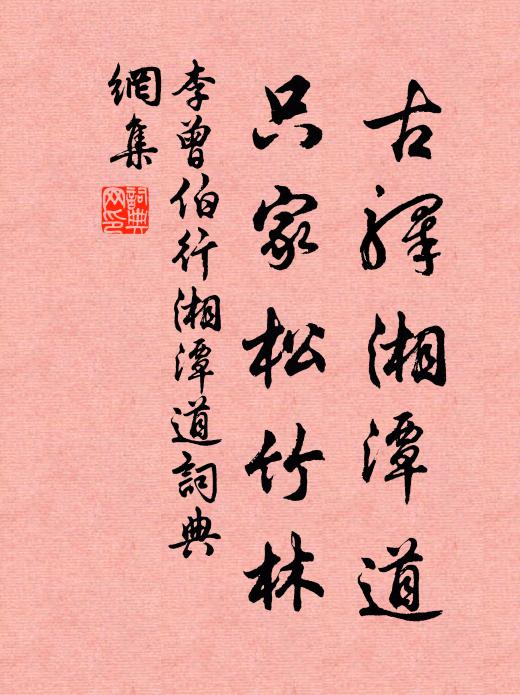 古驛湘潭道
只家松竹林
李曾伯行湘潭道詞典
網集
詞典網印